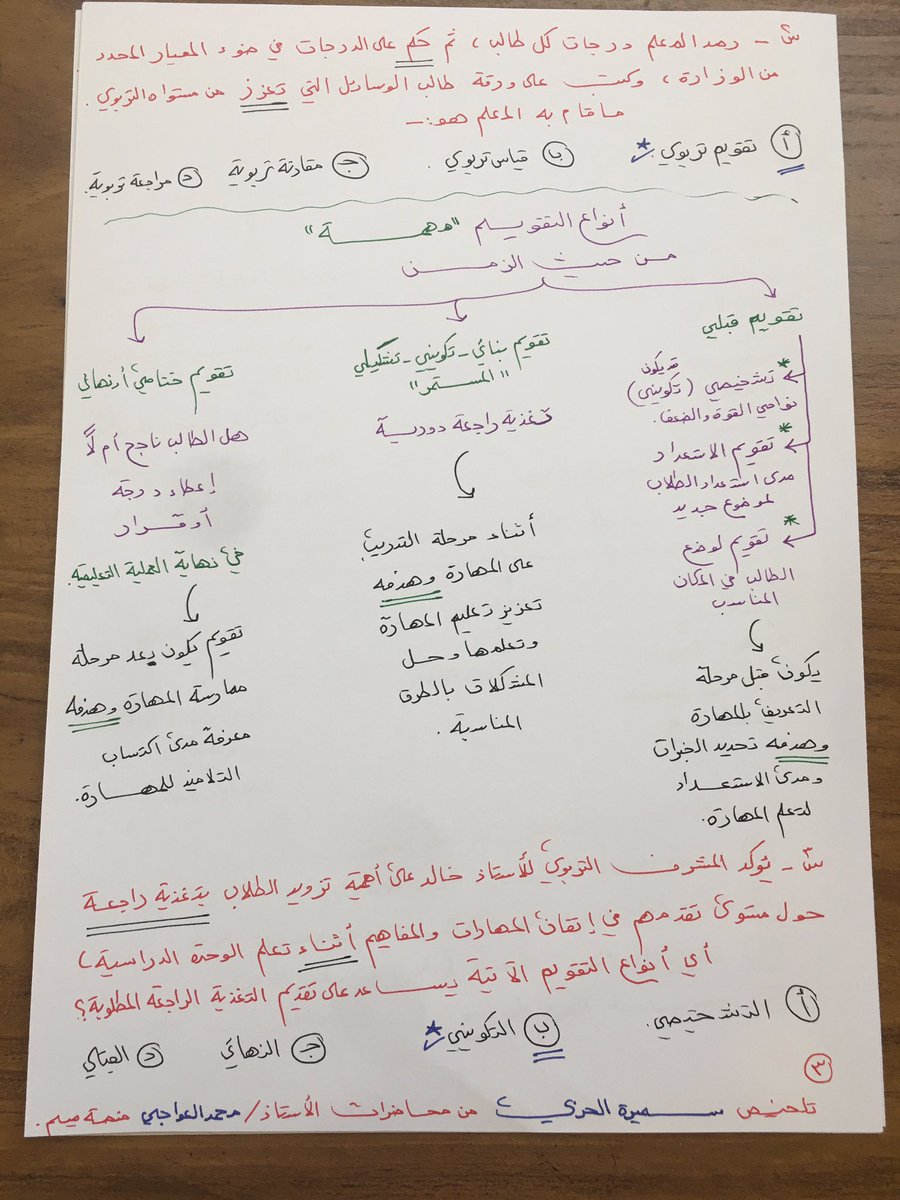 س - رصد المعلم درجات كل طالب ، ثم حكم على الدرجات في ضوء المعيار المحدد
من الوزارة ، وكتب على ورقة طالب الوسائل التي تعزز من مستواه التربوي .
ماقام به المعلم هو :-
أ تقويم تربوي .
ب قياس تربوي .
جـ مقارنة تربوية
د مراجعة تربوية .
أنواع التقويم "مهمة"
من حيث الزمن
تقويم قبلي
* تشخيصي (قد يكون تكويني)
نواحي القوة والضعف .
* تقويم الاستعداد
مدى استعداد الطلاب
لموضوع جديد
* تقويم لوضع
الطالب في المكان
المناسب
يكون قبل مرحلة
التعريف بالمهارة
وهدفه تحديد الخبرات
ومدى الاستعداد
لتعلم المهارة .
تقويم بنائي - تكويني - تشكيلي
"المستمر"
تغذية راجعة دورية
أثناء مرحلة التدريب
على المهارة وهدفه
تعزيز تعليم المهارة
وتعلمها وحل
المشكلات بالطرق
المناسبة .
تقويم ختامي أو نهائي
هل الطالب ناجح أم لا
إعطاء درجة
أو قرار
في نهاية العملية التعليمية .
تقويم يكون بعد مرحلة
ممارسة المهارة وهدفه
معرفة مدى اكتساب
التلاميذ للمهارة .
س - يؤكد المشرف التربوي للأستاذ خالد على أهمية تزويد الطلاب بتغذية راجعة
حول مستوى تقدمهم في إتقان المهارات والمفاهيم أثناء تعلم الوحدة الدراسية )
أي أنواع التقويم الآتية يساعد على تقديم التغذية الراجعة المطلوبة ؟
أ التشخيصي .
ب التكويني
جـ النهائي
د القبلي
٣
تلخيص سميرة الحربي من محاضرات الأستاذ / محمد العواجي منصة ميم .